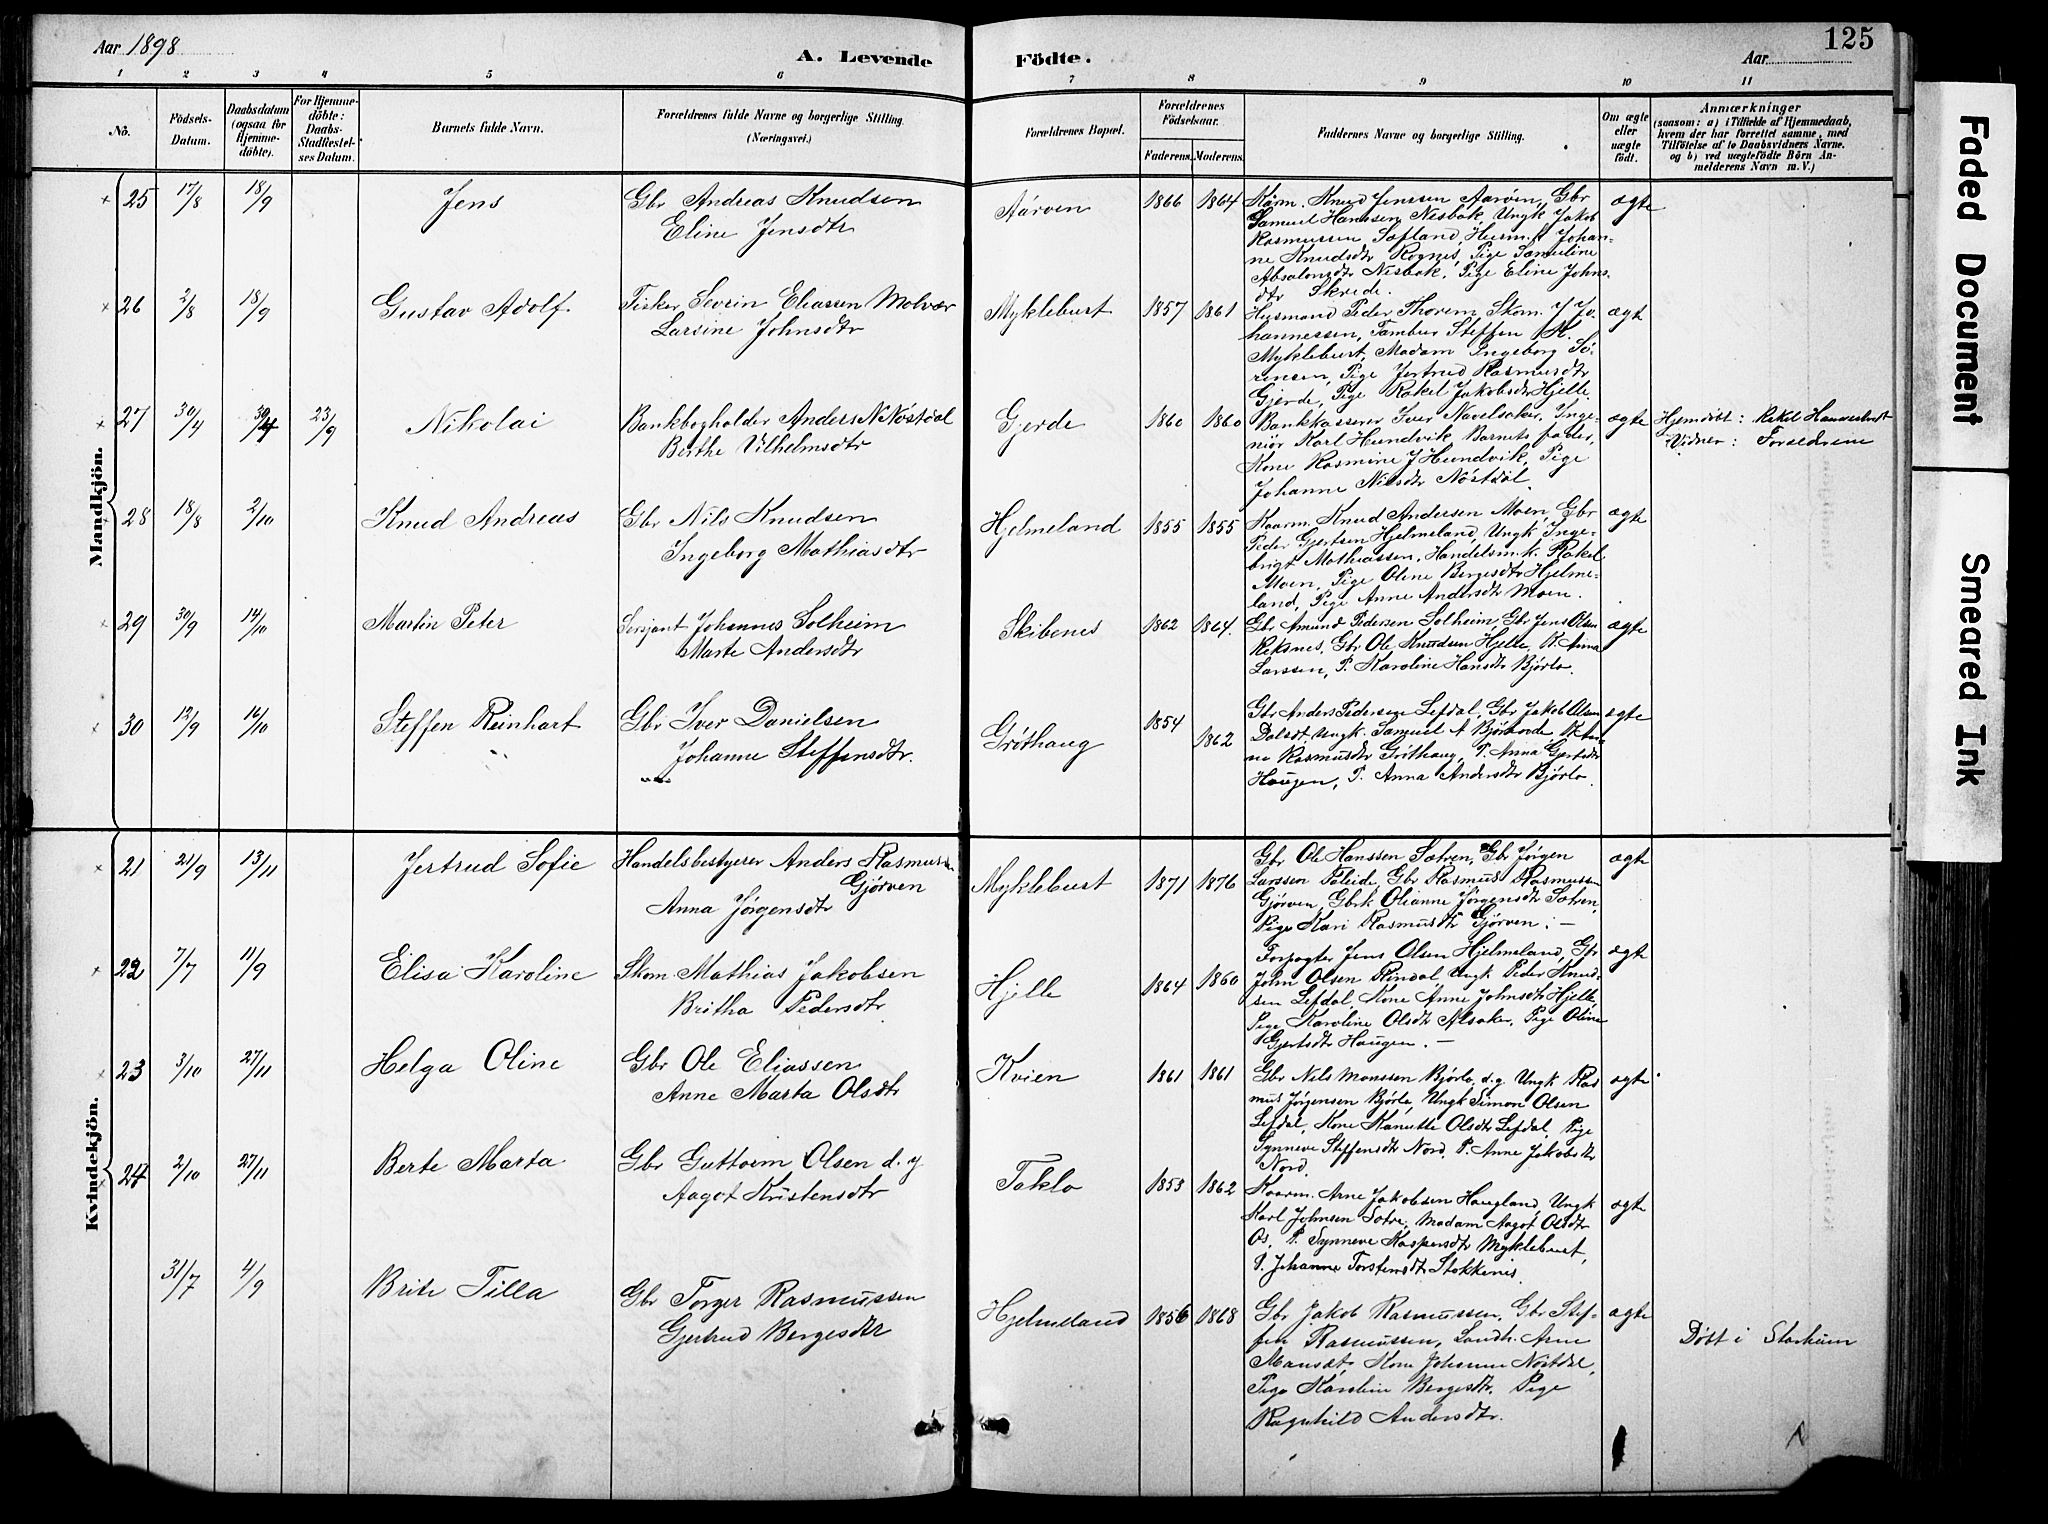 Aar 1898
A. Levende
Födte.
Aar
125
1 2 3 4 5 6 7 8 9 10 11
No.
Födsels-
Datum.
Daabsdatum
(ogsaa for
Hjemme-
döbte).
For Hjemme-
döbte:
Daabs-
Stadfæstel-
ses Datum.
Barnets fulde Navn.
Forældrenes fulde Navne og borgerlige Stilling
(Næringsvei.)
Forældrenes Bopæl.
Forældrenes
Födselsaar.
Faderens. Moderens.
Faddernes Navne og borgerlige Stilling.
Om ægte
eller
uægte
födt.
Anmærkninger
(saasom: a) i Tilfælde af Hjemmedaab,
hvem der har forrettet samme, med
Tilföielse af to Daabsvidners Navne.
og b) ved uægtefödte Börn An-
melderens Navn m. V.)
Mandkjön.
25 17/8 18/9 Jens
Gbr Andreas Knudsen
Eline Jensdtr
Aarven 1866 1864
Kårm. Knud Jenssen Aarven, Gbr
Samuel Hanssen Nesbak, Ungk Jakob
Rasmussen Sætland, Husm.k Johan-
ne Knudsdtr Rognes, Pige Samueline
Absalonsdtr Nesbak, Pige Eline Johns
dtr Skrede.
ægte
26 2/8 18/9 Gustav Adolf
Fisker Severin Eliassen Molvær
Larsine Johnsdtr
Myklebust 1857 1861
Husmand Peder Thorem, Skom. J Jo
hannessen, Tambur Steffen M.
Myklebust, Madam Ingeborg Sö-
rensen, Pige Jertrud Rasmusdtr
Gjerde, Pige Rakel Jakobsdtr Hjelle.
ægte
27 30/4 30/4 23/9 Nikolai
Bankbogholder Anders N Nöstdal
Berthe Vilhelmsdtr
Gjerde 1860 1860
Bankkasserer Iver Navelsaker, Inge-
niör Karl Hundvik, Barnets fader,
Kone Rasmine J Hundvik, Pige
Johanne Nilsdtr Nöstdal.
ægte
Hjemdöbt:
Vidner: Forældrene
28 18/8 2/10 Knud Andreas
Gbr Nils Knudsen
Ingeborg Mathiasdtr
Hjelmeland 1855 1855
Kaarm. Knud Andersen Moen, Gbr
Peder Gjertsen Hjelmeland, Ungk Inge-
brigt Mathiassen, Handelsm.k. Rakel
Moen, Pige Oline Bergesdtr Hjelme-
land, Pige Anne Andersdtr Moen.
ægte
29 30/9 14/10 Martin Peter
Sersjant Johannes Solheim
Marte Andersdtr
Skibenes 1862 1864.
Gbr Amund Pedersen Solheim, Gbr Jens Olsen
Reksnes, Gbr Ole Knudsen Hjelle, K. Anna
Larssen, P. Karoline Hansdtr Bjørlo.
ægte
30 12/9 16/10 Steffen Reinhart
Gbr Iver Danielsen
Johanne Steffensdtr.
Gröthaug 1854 1862
Gbr Anders Pedersen Lefdal, Gbr Jakob Olsen
Dalsdt, Ungk. Samuel A Björhovde, K. An-
ne Rasmusdtr Gröthaug, P. Anna Gjertsdtr
Haugen, P. Anna Andersdtr Björlo.
ægte
Kvindekjön.
21 21/9 13/11 Jertrud Sofie
Handelsbestyrer Anders Rasmussen
Gjörven
Anna Jörgensdtr
Myklebust 1871 1876
Gbr Ole Hanssen Sætren, Gbr Jörgen
Larssen Faleide, Gbr Rasmus Rasmussen
Gjörven, Gbrk Olianne Jörgensdtr Sætren,
Pige Kari Rasmusdtr Gjörven. –
ægte
22 7/7 11/9 Elisa Karoline
Skom Mathias Jakobsen
Britha Pedersdtr
Hjelle 1864 1860
Forpagter Jens Olsen Hjelmeland, Gbr
John Olsen Rindal, Ungk Peder Knud-
sen Lefdal, Kone Anne Johnsdtr Hjelle,
Pige Karoline Olsdtr Alsaker, Pige Oline
Gjertsdtr Haugen. –
ægte
23 3/10 27/11 Helga Oline
Gbr Ole Eliassen
Anne Marta Olsdtr
Kvien 1861 1861
Gbr Nils Monssen Bjørlo, d.y. Ungk Ras
mus Jørgensen Bjørlo, Ungk Simon Olsen
Lefdal, Kone Kanutte Olsdtr Lefdal, Pige
Synneve Steffensdtr Nord, P. Anne Jakobsdtr
Nord.
ægte
24 2/10 27/11 Berte Marta
Gbr Guttorm Olsen d. y
Aagot Kristensdtr
Taklo 1853 1862
Kaarm. Arne Jakobsen Haugland, Ungk
Karl Johnsen Sætre, Madam Aagot Olsdtr
Os, P. Synneve Kaspersdtr Myklebust,
P. Johanne Torstensdtr Stokkenes.
ægte
31/7 4/9 Brite Tilla
Gbr Torger Rasmussen
Gjertrud Bergesdtr
Hjelmeland 1856 1868
Gbr Jakob Rasmussen, Gbr Stef-
fen Rasmussen, Landh. Arne
Mansæt, Kone Johanne Nöstdal,
Pige Karoline Bergesdtr, Pige
Ragnhild Andersdtr.
ægte
Döbt i Starheim
Faded Document
Smeared Ink